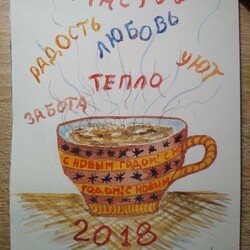 РАДОСТЬ
ЛЮБОВЬ
УЮТ
ТЕПЛО
ЗАБОТА
С НОВЫМ ГОДОМ! С Н
ГОДОМ! С НОВЫМ
2018